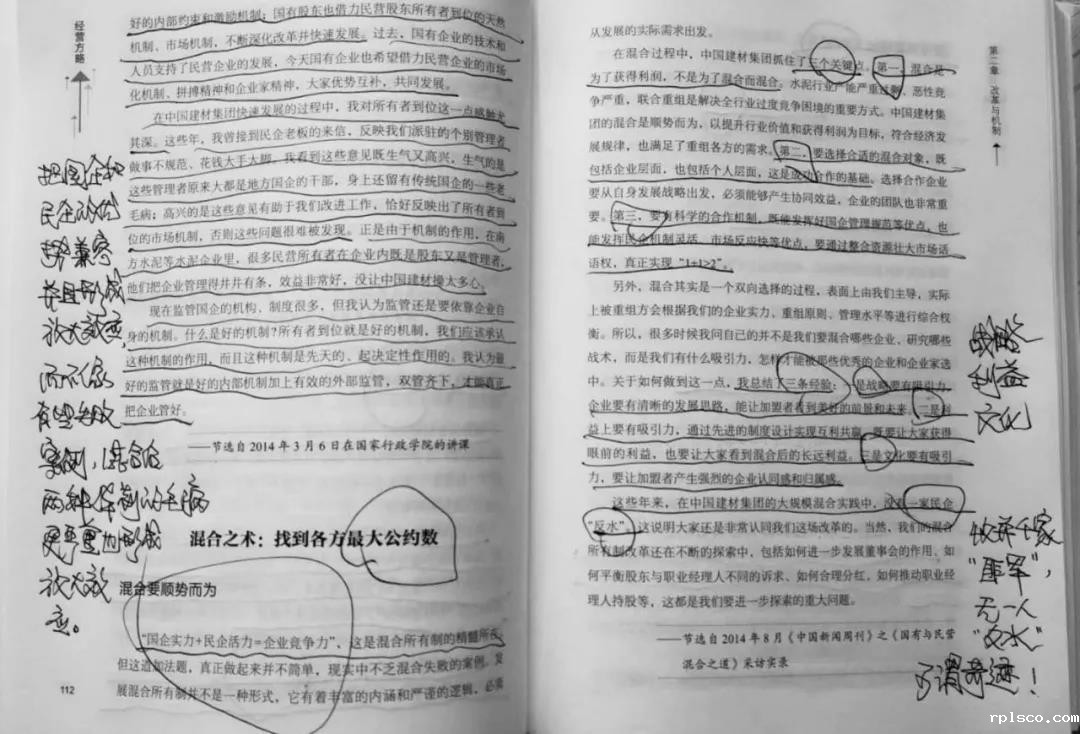 经营方略
好的内部约束和激励机制；国有股东也借力民营股东所有者到位的天然
机制、市场机制，不断深化改革并快速发展。过去，国有企业的技术和
人员支持了民营企业的发展，今天国有企业也希望借力民营企业的市场
化机制、拼搏精神和企业家精神，大家优势互补，共同发展。
在中国建材集团快速发展的过程中，我对所有者到位这一点感触尤
其深。这些年，我曾接到民企老板的来信，反映我们派驻的个别管理者
做事不规范、花钱大手大脚。我看到这些意见既生气又高兴，生气的是
这些管理者原来大都是地方国企的干部，身上还留有传统国企的一些老
毛病；高兴的是这些意见有助于我们改进工作，恰好反映出了所有者到
位的市场机制，否则这些问题很难被发现。正是由于机制的作用，在南
方水泥等水泥企业里，很多民营所有者在企业内既是股东又是管理者，
他们把企业管理得井井有条，效益非常好，没让中国建材操太多心。
现在监管国企的机构、制度很多，但我认为监管还是要依靠企业自
身的机制。什么是好的机制？所有者到位就是好的机制，我们应该承认
这种机制的作用，而且这种机制是先天的、起决定性作用的。我认为最
好的监管就是好的内部机制加上有效的外部监管，双管齐下，才能真正
把企业管好。
——节选自 2014 年 3 月 6 日在国家行政学院的讲课
混合之术：找到各方最大公约数
混合要顺势而为
“国企实力+民企活力=企业竞争力”，这是混合所有制的精髓所在。
但这道加法题，真正做起来并不简单，现实中不乏混合失败的案例。发
展混合所有制并不是一种形式，它有着丰富的内涵和严谨的逻辑，必须
112
把国企和
民企的优
势兼容
并且形成
放大效应，
而不像
有些失败
案例，混合后
两种体制的毛病
更严重的形成
放大效
应。
第二章 改革与机制
从发展的实际需求出发。
在混合过程中，中国建材集团抓住了三个关键点。第一，混合是
为了获得利润，不是为了混合而混合。水泥行业产能严重过剩、恶性竞
争严重，联合重组是解决全行业过度竞争困境的重要方式。中国建材集
团的混合是顺势而为，以提升行业价值和获得利润为目标，符合经济发
展规律，也满足了重组各方的需求。第二，要选择合适的混合对象，既
包括企业层面，也包括个人层面，这是成功合作的基础。选择合作企业
要从自身发展战略出发，必须能够产生协同效益，企业的团队也非常重
要。第三，要有科学的合作机制，既能发挥好国企管理规范等优点，也
能发挥民企机制灵活、市场反应快等优点，要通过整合资源壮大市场话
语权，真正实现“1+1>2”。
另外，混合其实是一个双向选择的过程，表面上由我们主导，实际
上被重组方会根据我们的企业实力、重组原则、管理水平等进行综合权
衡。所以，很多时候我问自己的并不是我们要混合哪些企业、研究哪些
战术，而是我们有什么吸引力，怎样才能被那些优秀的企业和企业家选
中。关于如何做到这一点，我总结了三条经验：一是战略要有吸引力，
企业要有清晰的发展思路，能让加盟者看到美好的前景和未来。二是利
益上要有吸引力，通过先进的制度设计实现互利共赢，既要让大家获得
眼前的利益，也要让大家看到混合后的长远利益。三是文化要有吸引
力，要让加盟者产生强烈的企业认同感和归属感。
这些年来，在中国建材集团的大规模混合实践中，没有一家民企
“反水”，这说明大家还是非常认同我们这场改革的。当然，我们的混合
所有制改革还在不断的探索中，包括如何进一步发展董事会的作用、如
何平衡股东与职业经理人不同的诉求、如何合理分红、如何推动职业经
理人持股等，这都是我们要进一步探索的重大问题。
——节选自 2014 年 8 月《中国新闻周刊》之《国有与民营
混合之道》采访实录
战略
利益
文化
收编千家
无一人
“反水”
可谓奇迹！
rplsco.com